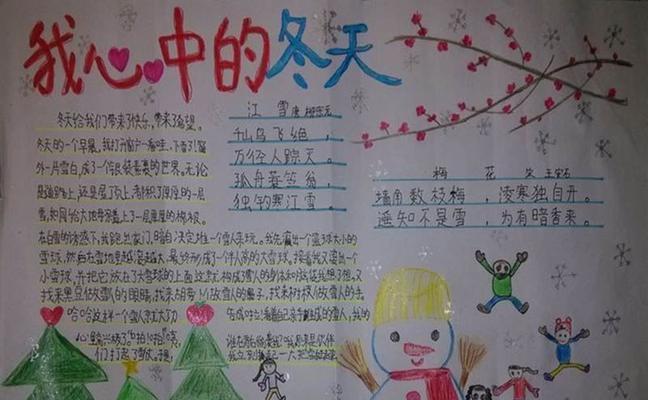 我心中的冬天
冬天给我们带来了快乐，带来了希望。
冬天的一个早晨，我打开窗户一看哇，下雪了！窗
外一片雪白，成了一个银装素裹的世界。无论
是道路上，还是屋顶上，都积了厚厚的一层
雪，如同给大地母亲盖上了一层厚厚的棉被。
在白雪的诱惑下，我跑出家门，暗自决定堆一个雪人来玩。我先滚出一个篮球大小的
雪球，然后在雪地里越滚越大，最终形成了一个半人高的大雪球。接着我又滚出一个
小雪球，并把它放在了大雪球的上面这就构成雪人的身体和
找来黑豆做雪人的眼睛，找来胡萝卜做雪人的鼻子，找来树枝做雪人的手
哈哈这样一个雪人就大功
告成
心里
江 雪 唐 柳宗元
千山鸟飞绝，
万径人踪灭。
孤舟蓑笠翁，
独钓寒江雪。
梅 花 宋 王安石
墙角数枝梅，凌寒独自开。
遥知不是雪，为有暗香来。